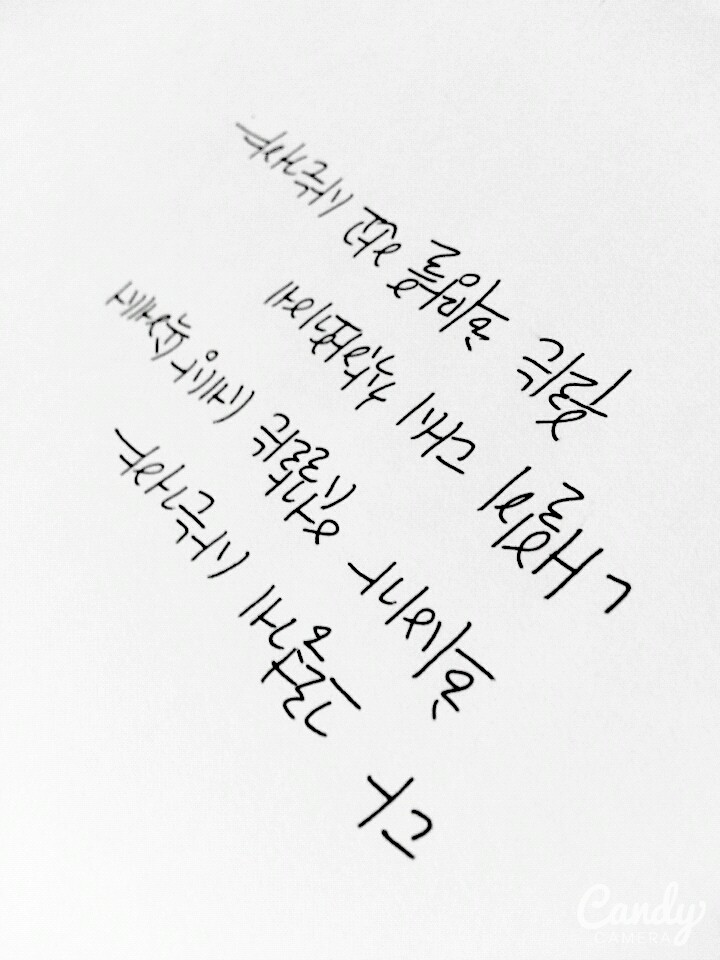 다 그렇게 사는거야
희비가 엇갈리는 세상 속에서
내일이 다시 찾아오기에
우리는 희망을 안고 사는거야
Candy
CAMERA